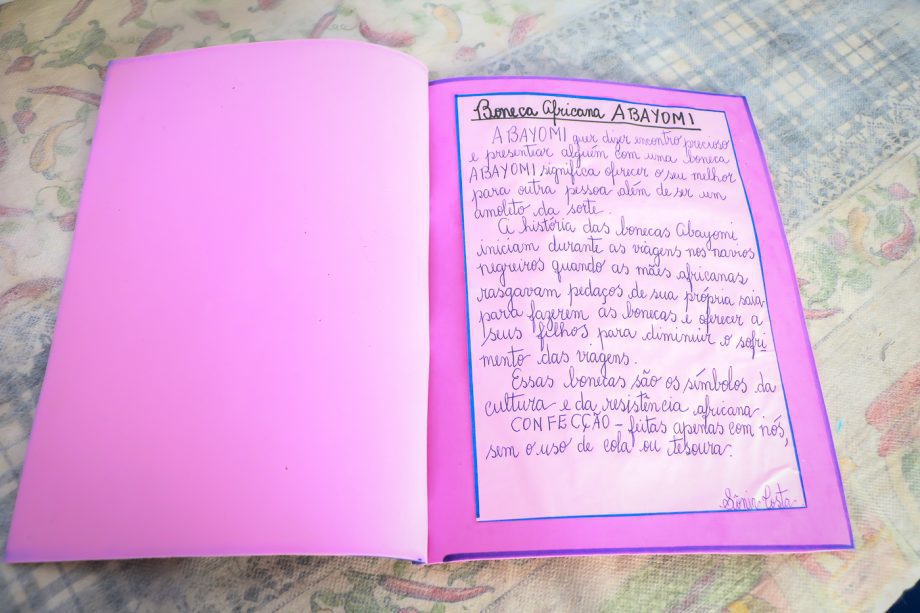 Boneca Africana ABAYOMI
ABAYOMI quer dizer encontro precioso
e presentiar alguém com uma boneca
ABAYOMI significa oferecer o seu melhor
para outra pessoa além de ser um
amoleto da sorte.
A história das bonecas Abayomi
iniciam durante as viagens nos navios
negreiros quando as mães africanas
rasgavam pedaços de sua própria saia
para fazerem as bonecas e oferecer a
seus filhos para diminuir o sofri
mento das viagens.
Essas bonecas são os símbolos da
cultura e da resistência africana
CONFECÇÃO - feitas apenas com nós,
sem o uso de cola ou tesoura.
Sônia Costa